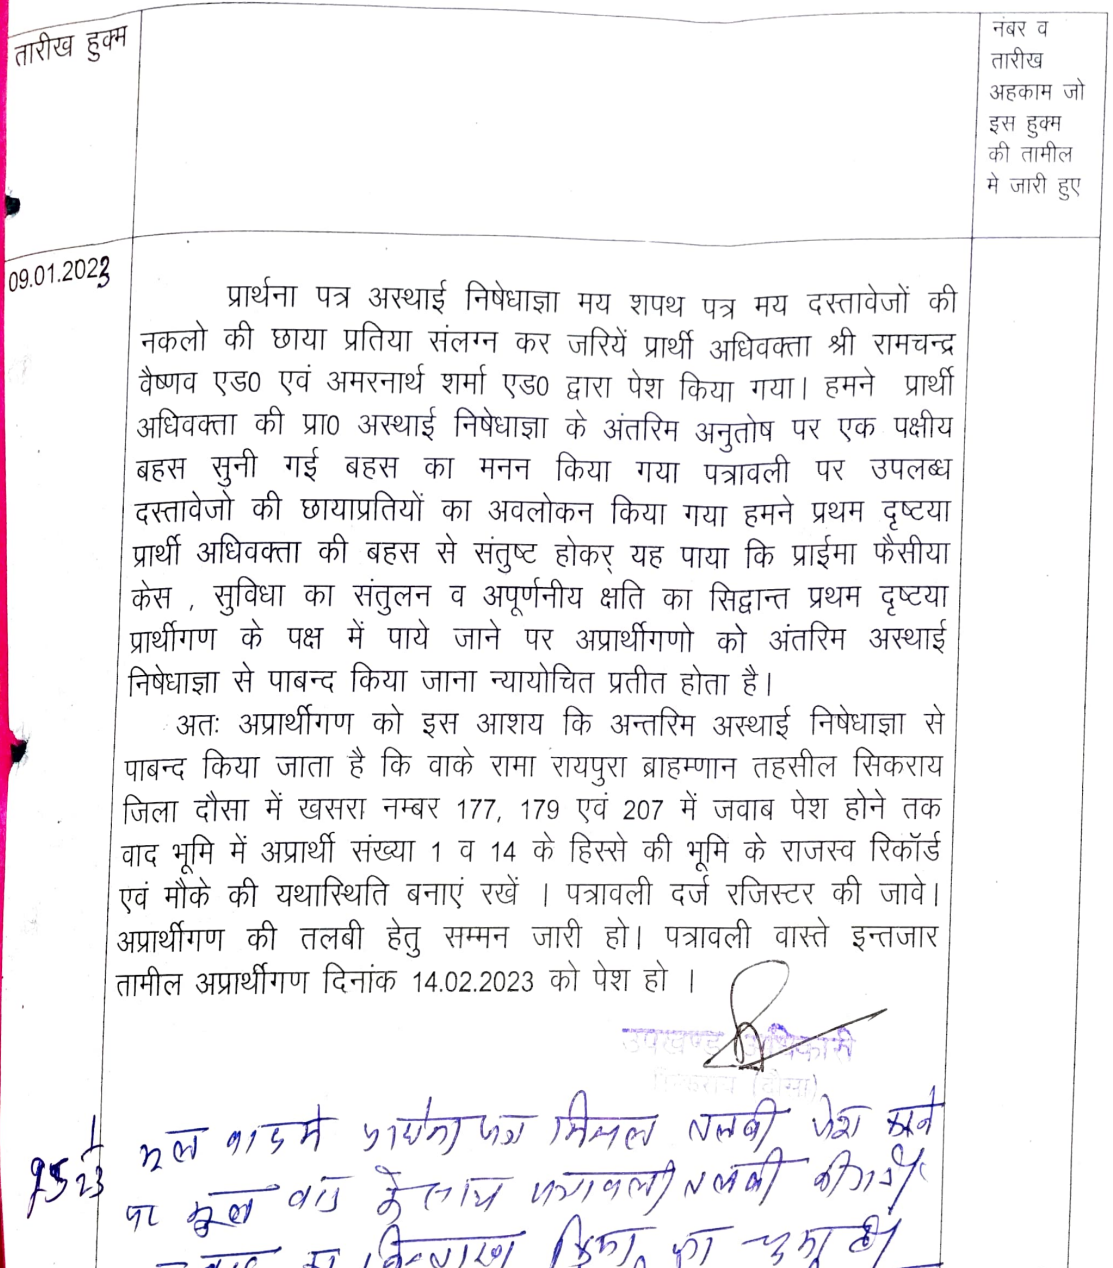 तारीख हुक्म
नंबर व
तारीख
अहकाम जो
इस हुक्म
की तामील
मे जारी हुए
09.01.2023
प्रार्थना पत्र अस्थाई निषेधाज्ञा मय शपथ पत्र मय दस्तावेजों की
नकलो की छाया प्रतिया संलग्न कर जरियें प्रार्थी अधिवक्ता श्री रामचन्द्र
वैष्णव एड0 एवं अमरनार्थ शर्मा एड0 द्वारा पेश किया गया। हमने प्रार्थी
अधिवक्ता की प्रा0 अस्थाई निषेधाज्ञा के अंतरिम अनुतोष पर एक पक्षीय
बहस सुनी गई बहस का मनन किया गया पत्रावली पर उपलब्ध
दस्तावेजो की छायाप्रतियों का अवलोकन किया गया हमने प्रथम दृष्टया
प्रार्थी अधिवक्ता की बहस से संतुष्ट होकर् यह पाया कि प्राईमा फैसीया
केस , सुविधा का संतुलन व अपूर्णनीय क्षति का सिद्वान्त प्रथम दृष्टया
प्रार्थीगण के पक्ष में पाये जाने पर अप्रार्थीगणो को अंतरिम अस्थाई
निषेधाज्ञा से पाबन्द किया जाना न्यायोचित प्रतीत होता है।
अतः अप्रार्थीगण को इस आशय कि अन्तरिम अस्थाई निषेधाज्ञा से
पाबन्द किया जाता है कि वाके रामा रायपुरा ब्राहम्णान तहसील सिकराय
जिला दौसा में खसरा नम्बर 177, 179 एवं 207 में जवाब पेश होने तक
वाद भूमि में अप्रार्थी संख्या 1 व 14 के हिस्से की भूमि के राजस्व रिकॉर्ड
एवं मौके की यथास्थिति बनाएं रखें । पत्रावली दर्ज रजिस्टर की जावे।
अप्रार्थीगण की तलबी हेतु सम्मन जारी हो। पत्रावली वास्ते इन्तजार
तामील अप्रार्थीगण दिनांक 14.02.2023 को पेश हो ।
उपखण्ड अधिकारी
सिकराय (दौसा)
मूल वाद मे प्रार्थना पत्र मिसल तलबी पेश करने
पर मूल वाद के साथ पत्रावली तलबी की गई